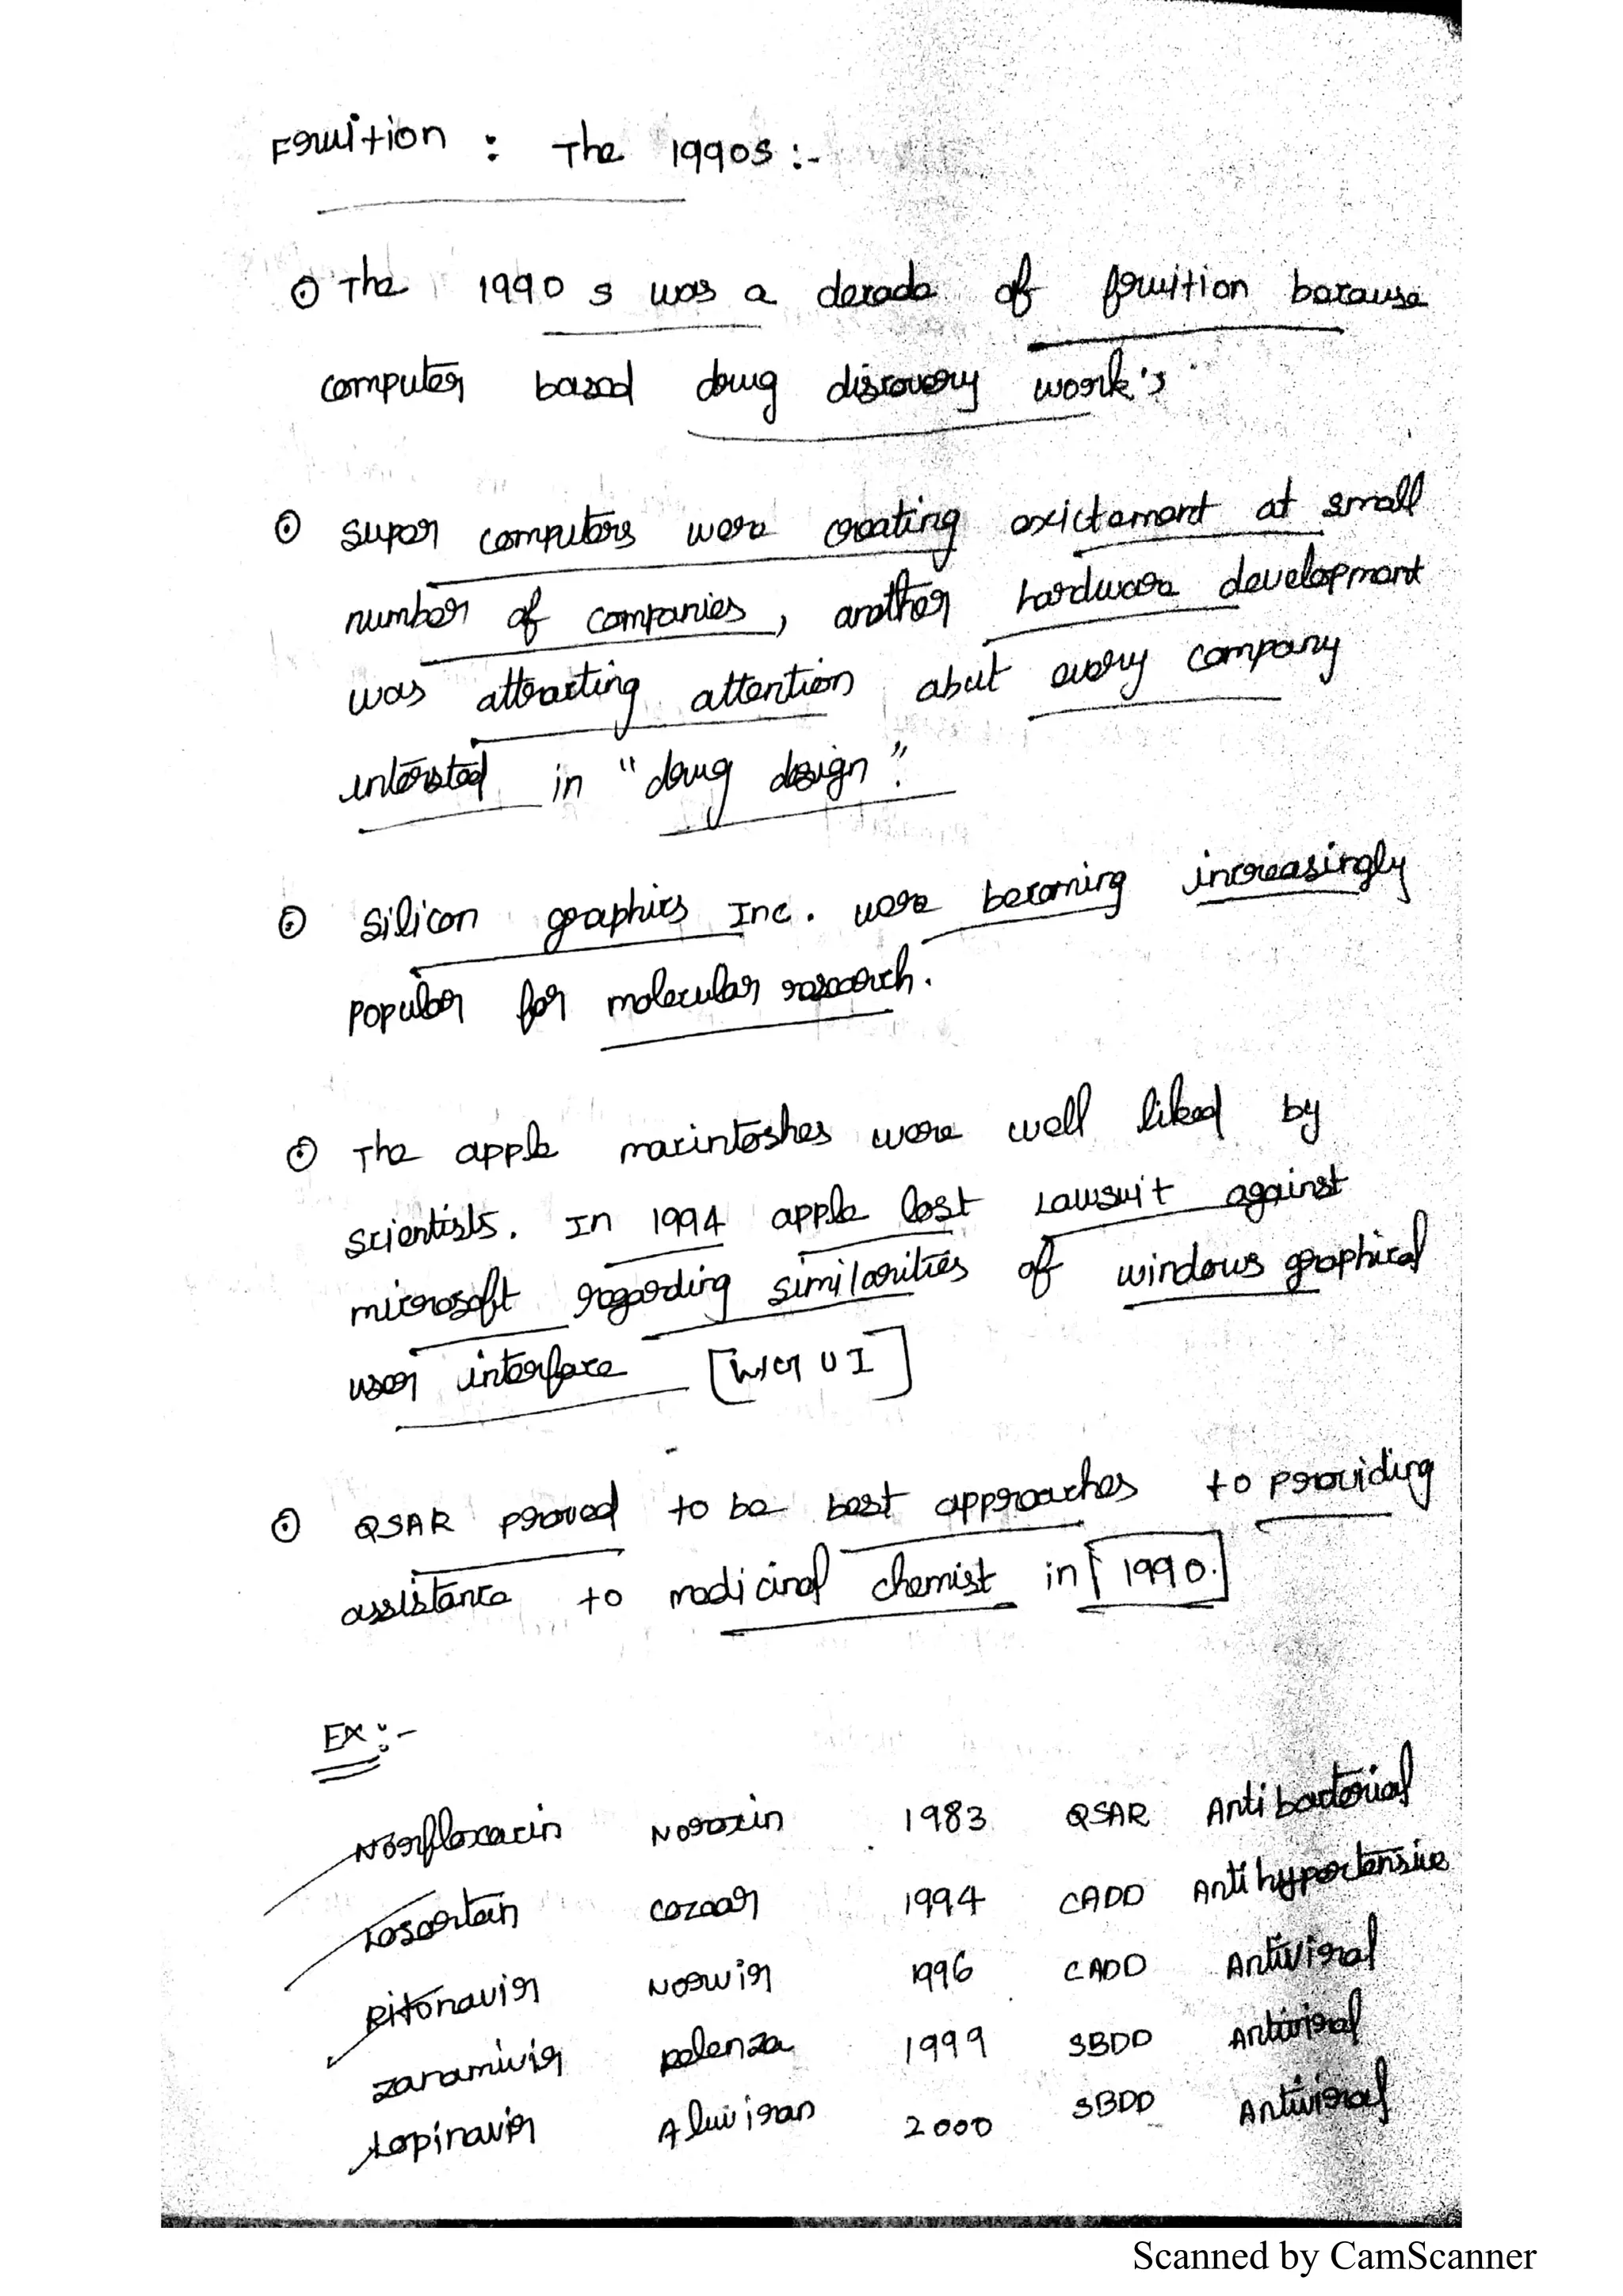 Fruition : The 1990s :-
⊙ The 1990 s was a decade of fruition because
computer based drug discovery work's
⊙ super computers were creating exictement at small
number of companies, another hardware development
was attracting attention abut every company
intersted in "drug design".
⊙ Silicon graphics Inc. were becoming increasingly
popular for molecular research.
⊙ The apple macintoshes were well liked by
scientists. In 1994 apple lost Lawsuit against
microsoft regarding similarities of windows graphical
user interface [WG UI]
⊙ QSAR proved to be best approaches to providing
assistance to medicinal chemist in [1990.]
EX :-
Norfloxacin Noroxin 1983 QSAR Antibacterial
Losartan Cozaar 1994 CADD Antihypertensive
Ritonavir Norwir 1996 CADD Antiviral
Zanamivir Relenza 1999 SBDD Antiviral
Lopinavir Aluviran 2000 SBDD Antiviral
Scanned by CamScanner